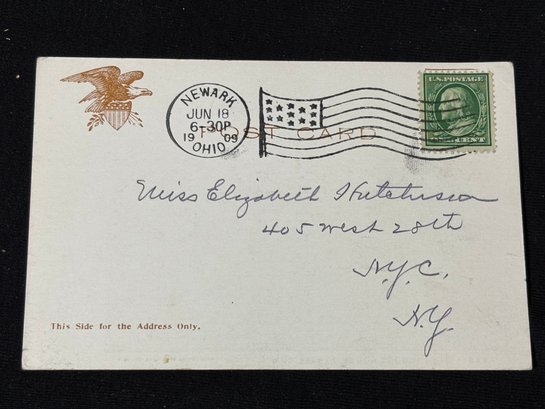 NEWARK
JUN 18
6-30P
19 09
OHIO
U.S. POSTAGE
CENT
POST CARD
Miss Elizabeth Hutchinson
405 West 28th
N.Y.C.
N.Y.
This Side for the Address Only.